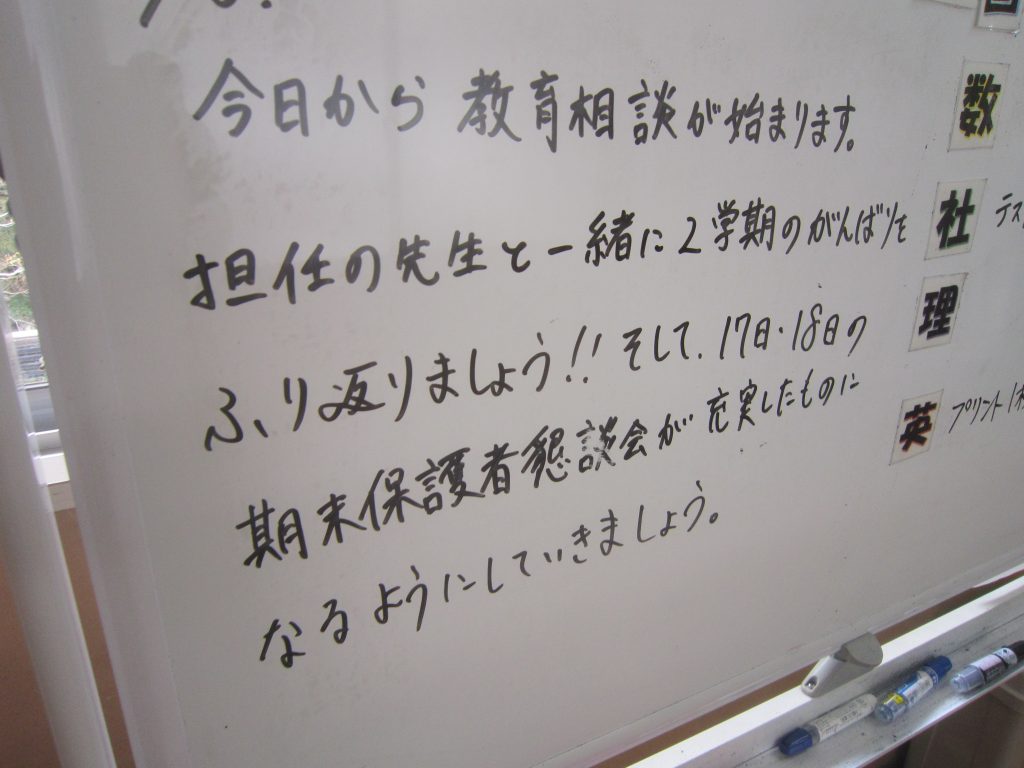 今日から 教育相談が始まります。
担任の先生と一緒に2学期のがんばりを
ふり返りましょう!! そして、17日・18日の
期末保護者懇談会が充実したものに
なるようにしていきましょう。
数
社 テス
理
英 プリント1枚